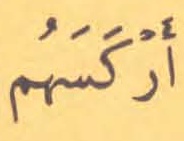 أرْكَسَهُم